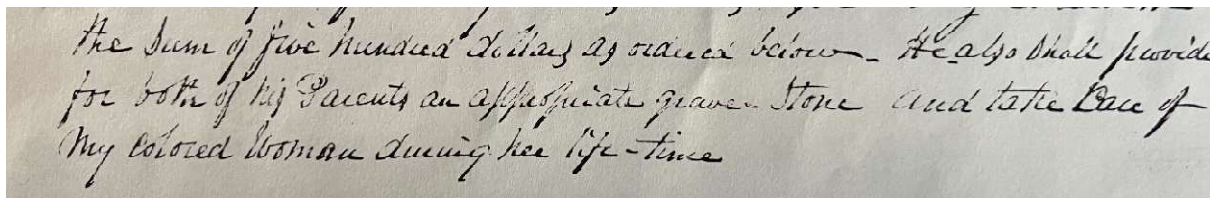 the Sum of five hundred dollars as ordered below - He also Shall provide
for both of his Parents an appropriate grave-Stone and take Care of
My Colored Woman during her life-time